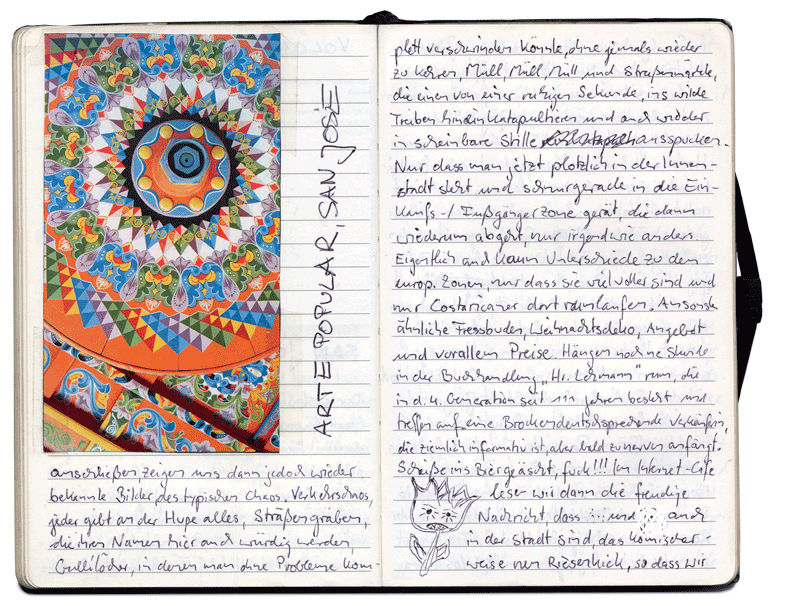 ARTE POPULAR, SAN JOSÉ
anschließen zeigen uns dann jedoch wieder
bekannte Bilder, des typischen Chaos, Verkehrschaos,
jeder gibt an der Hupe alles, Straßengräben,
die ihren Namen hier auch würdig werden,
Gullilöcher, in denen man ohne Probleme kom-
plett verschwinden könnte, ohne jemals wieder
zu kehren, Müll, Müll, Müll und Straßenmärkte,
die einen von einer ruhigen Sekunde, ins wilde
Treiben hineinkatapultieren und auch wieder
in scheinbare Stille ausspucken.
Nur dass man jetzt plötzlich in der Innen-
stadt steht und schnurgerade in die Ein-
kaufs-/ Fußgängerzone gerät, die dann
wiederum abgeht, nur irgendwie anders.
Eigentlich auch kaum Unterschiede zu den
europ. Zonen, nur dass sie viel voller sind und
nur Costaricaner dort rumlaufen. Ansonsten
ähnliche Fressbuden, Weihnachtsdeko, Angebot
und vorallem Preise. Hängen noch ne Stunde
in der Buchhandlung „Hr. Lehmann" rum, die
in d. 4. Generation seit 111 Jahren besteht und
treffen auf eine Brockendeutschsprechende Verkäuferin,
die ziemlich informativ ist, aber bald zu nerven anfängt.
Scheiße ins Biergesicht, fuck!!! Im Internet-Cafe
lesen wir dann die freudige
Nachricht, dass und auch
in der Stadt sind, das komischer-
weise nen Riesenkick, so dass wir